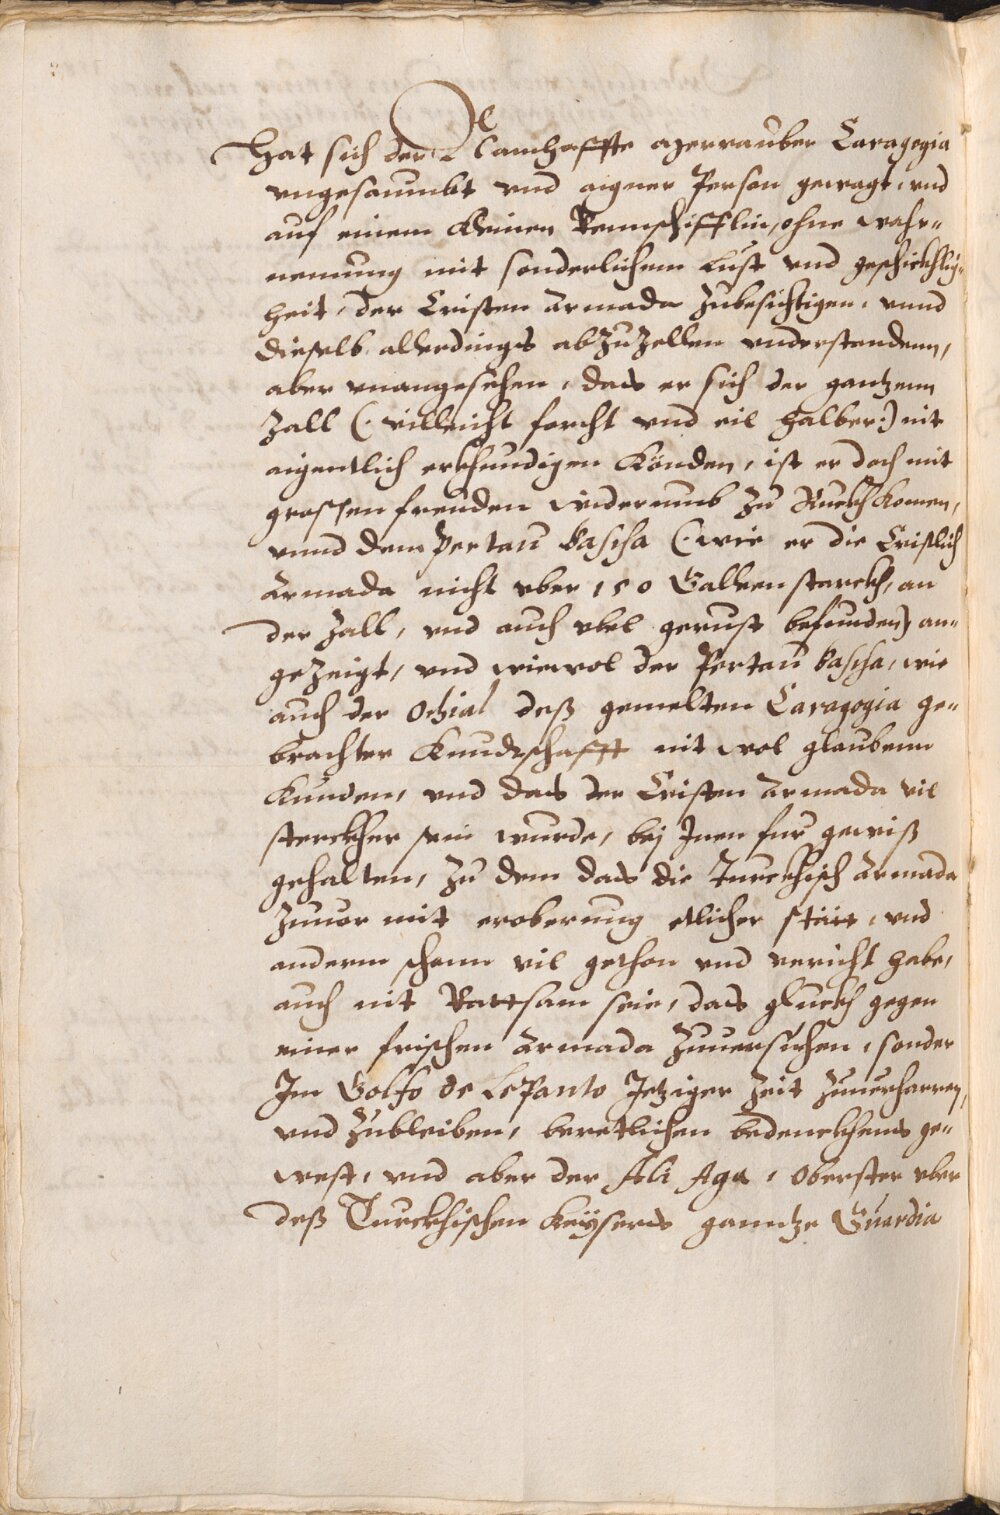 Hat sich der Namhaffte Meerrauber Caragogia
vngesaumbt vnd aigner Person gewagt, vnd
auf einem kleinen Rennschifflin, ohne wahr-
nemung mit sonderlichem Lust vnd geschickhlig-
heit, der Cristen Armada zubesichtigen, vnnd
dieselb allerdings abzuzellen vnderstanden,
aber vnangesehen, das er sich der gantzenn
Zall (: villeicht forcht vnd eil halber:) nit
aigentlich erkhundigen könden, ist er doch mit
grossen freuden widerumb zu Ruckh komen,
vnnd dem Pertau Bascha (: wie er die Cristlich
Armada nicht vber 150 Galleen starckh, an
der Zall, vnd auch vbel gerust befunden) an-
gezeigt, vnd wiewol der Pertau Bascha, wie
auch der Ochial deß gemelten Caragogia ge-
brachter Kundtschafft nit wol glaubenn
kunden, vnd das der Cristen Armada vil
sterckher sein wurde, bej Inen fur gewiß
gehalten, zu dem das die Turckhisch Armada
zuuor mit eroberung etlicher stätt, vnd
anderm schonn vil gethon vnd vericht habe,
auch nit Rattsam seie, das gluckh gegen
einer frischen Armada zuuersuchen, sonder
Im Golfo de LePanto Jetziger Zeit zuuerharren,
vnd zubleiben, beretlichen bedenckhens ge-
west, vnd aber der Ali Aga, Oberster vber
deß Turckhischen Keysers ganntze Guardia